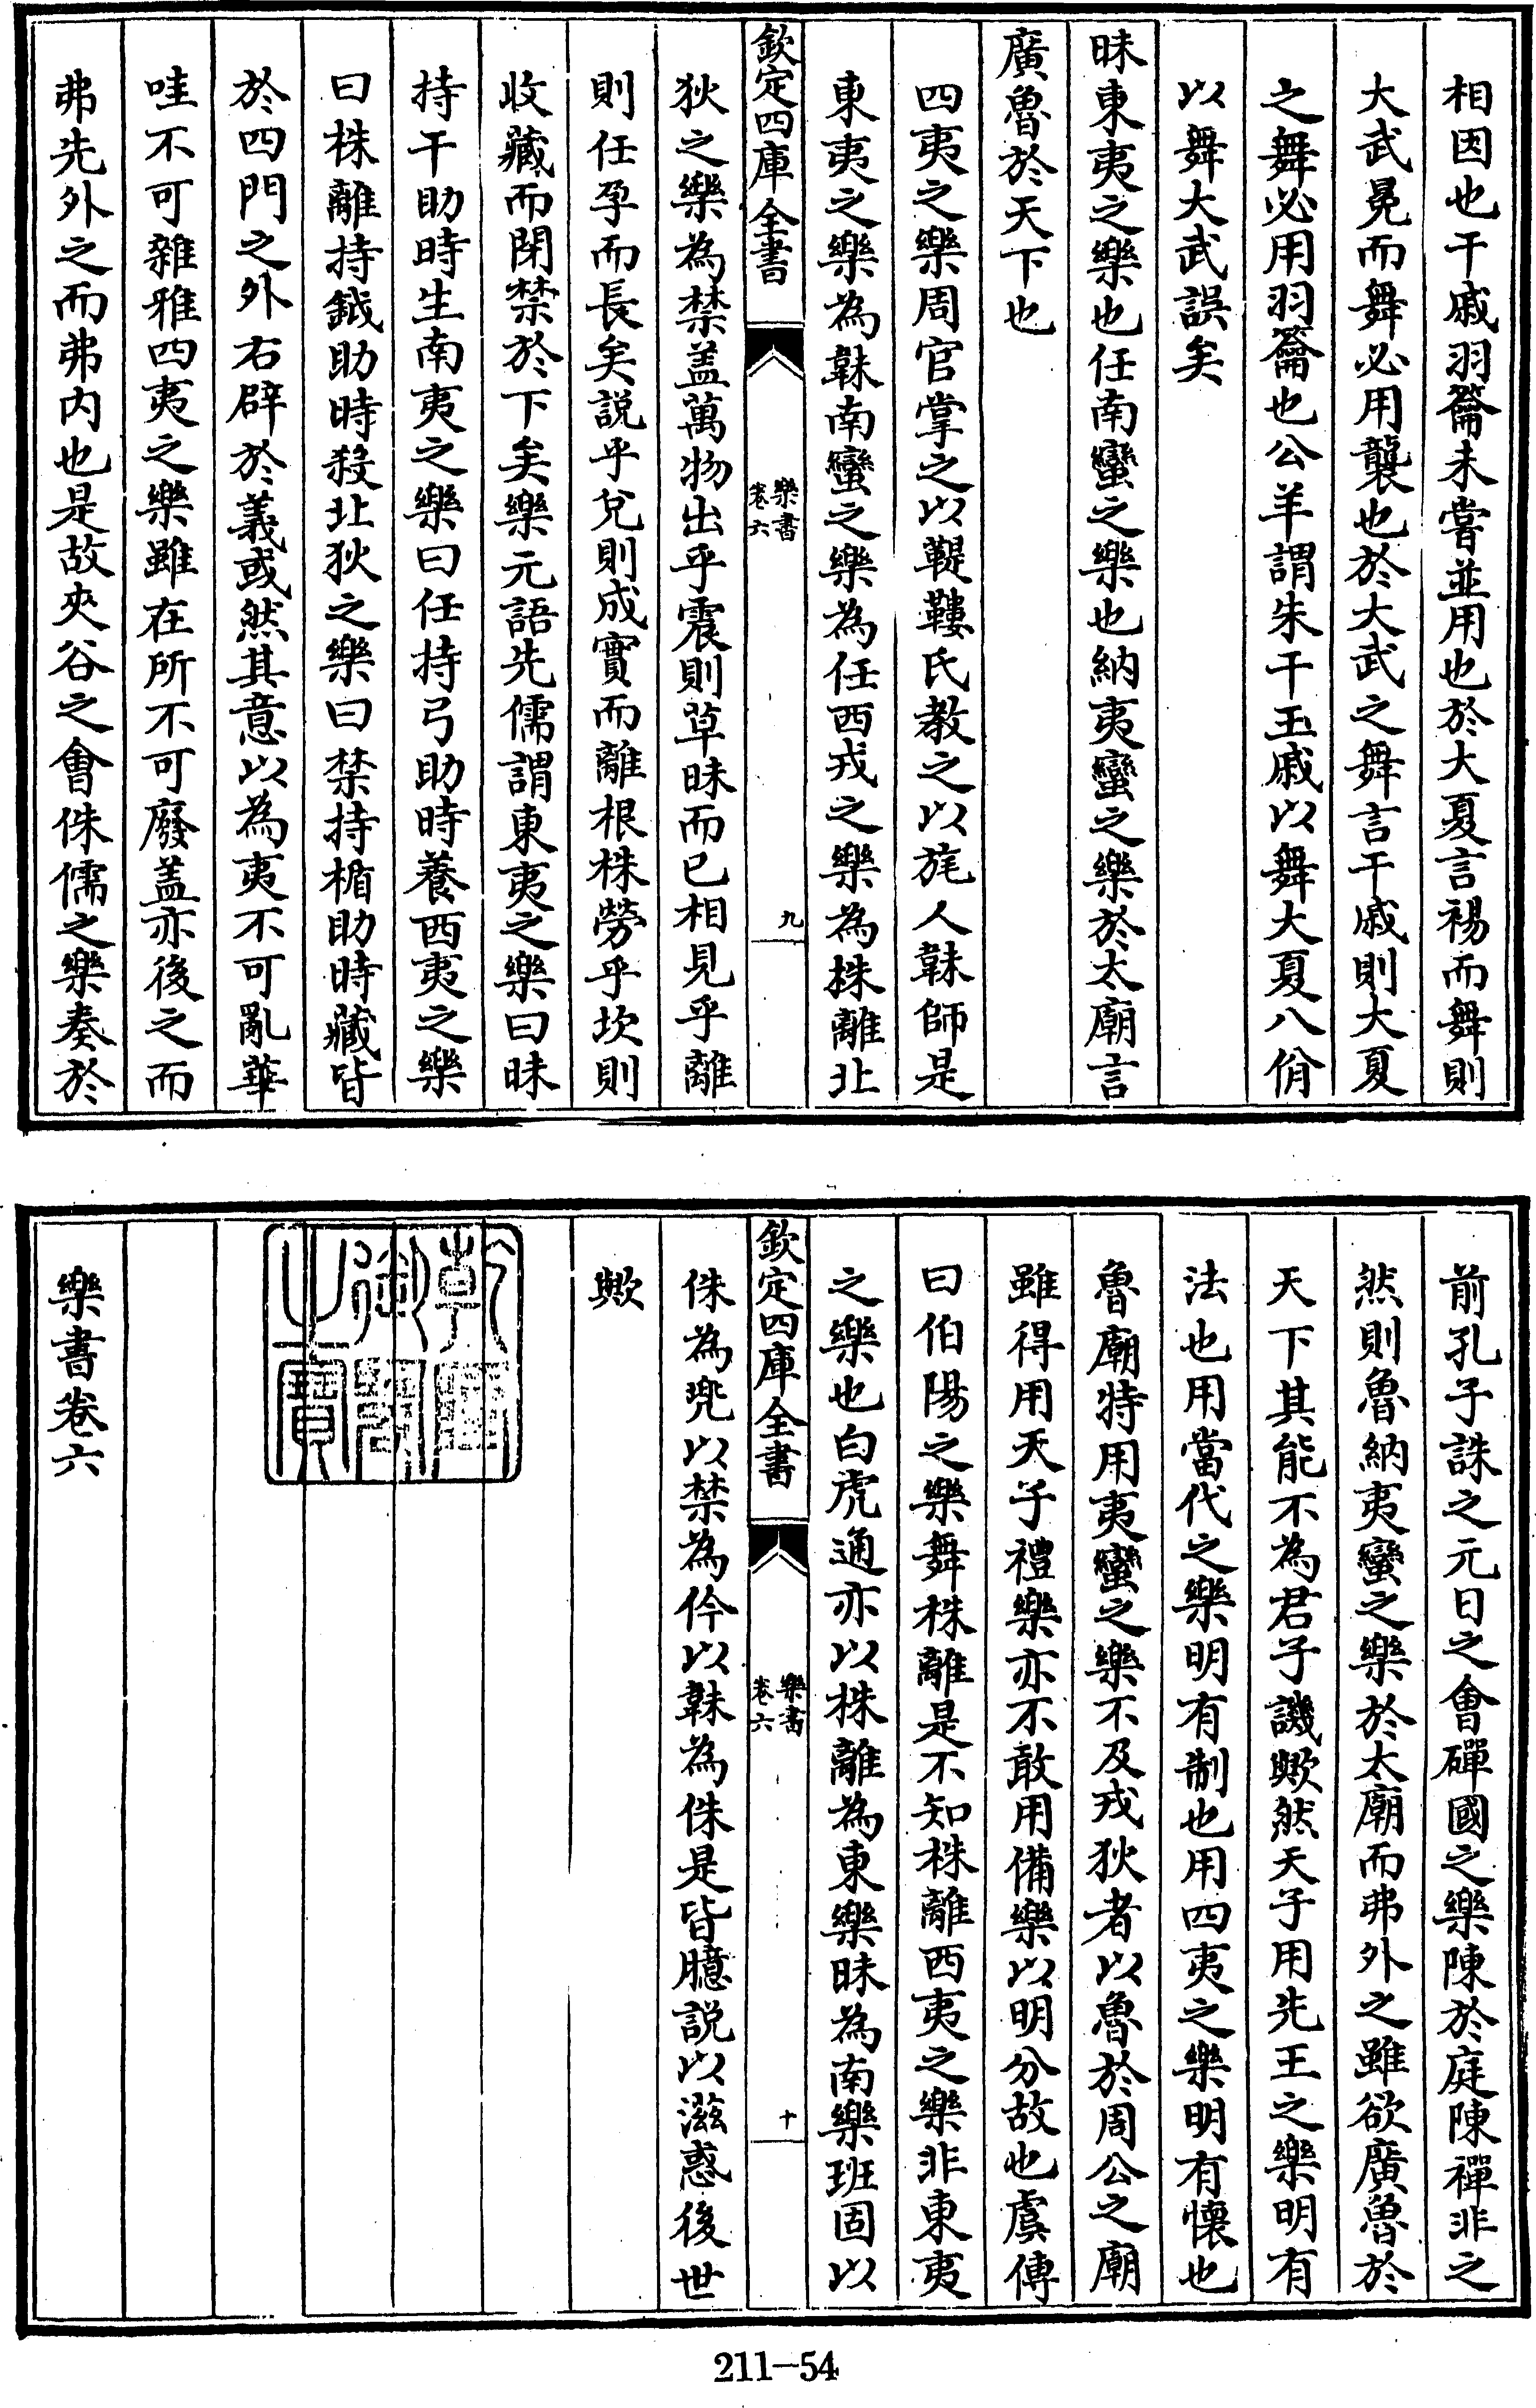 相因也干戚羽籥未嘗並用也於大夏言裼而舞則
大武冕而舞必用襲也於大武之舞言干戚則大夏
之舞必用羽籥也公羊謂朱干玉戚以舞大夏八佾
以舞大武誤矣
昧東夷之樂也任南蠻之樂也納夷蠻之樂於太廟言
廣魯於天下也
四夷之樂周官掌之以鞮鞻氏教之以旄人韎師是
東夷之樂為韎南蠻之樂為任西戎之樂為株離北
欽定四庫全書
樂書
卷六
九
狄之樂為禁盖萬物出乎震則草昧而已相見乎離
則任孕而長矣說乎兌則成實而離根株勞乎坎則
收藏而閉禁於下矣樂元語先儒謂東夷之樂曰昧
持干助時生南夷之樂曰任持弓助時養西夷之樂
曰株離持鉞助時殺北狄之樂曰禁持楯助時藏皆
於四門之外右辟於義或然其意以為夷不可亂華
哇不可雜雅四夷之樂雖在所不可廢盖亦後之而
弗先外之而弗内也是故夾谷之會侏儒之樂奏於
前孔子誅之元日之會磾國之樂陳於庭陳禪非之
然則魯納夷蠻之樂於太廟而弗外之雖欲廣魯於
天下其能不為君子譏歟然天子用先王之樂明有
法也用當代之樂明有制也用四夷之樂明有懷也
魯廟特用夷蠻之樂不及戎狄者以魯於周公之廟
雖得用天子禮樂亦不敢用備樂以明分故也虞傳
曰伯陽之樂舞株離是不知株離西夷之樂非東夷
之樂也白虎通亦以株離為東樂昧為南樂班固以
欽定四庫全書
樂書
卷六
十
侏為兜以禁為伶以韎為侏是皆臆說以滋惑後世
歟
乾隆御覽之寶
樂書卷六
211-54